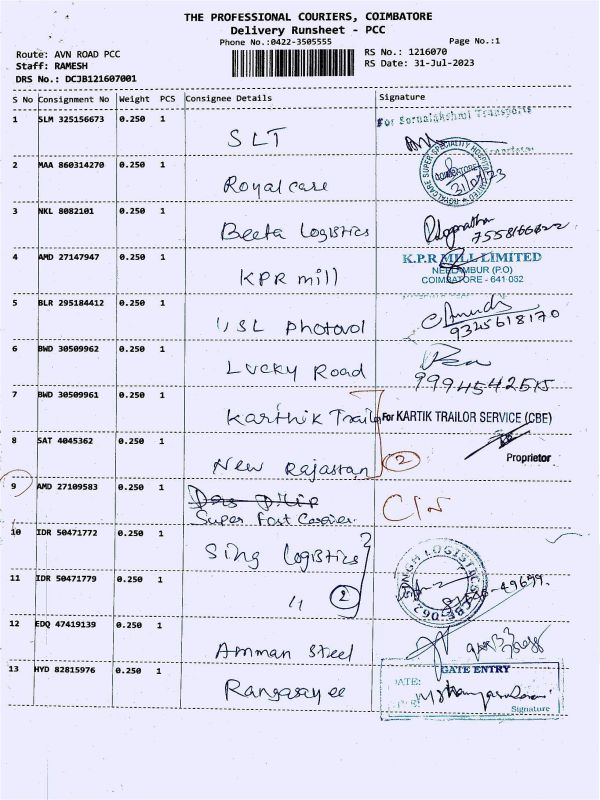 THE PROFESSIONAL COURIERS, COIMBATORE
Delivery Runsheet - PCC
Phone No.:0422-3505555
Page No.:1
Route: AVN ROAD PCC
RS No.: 1216070
Staff: RAMESH
RS Date: 31-Jul-2023
DRS No.: DCJB121607001
S No Consignment No Weight PCS Consignee Details Signature
1 SLM 325156673 0.250 1 SLT
For Sornalakshmi Transports
2 MAA 860314270 0.250 1 Royalcare
ROYALCARE SUPER SPECIALITY HOSPITAL LIMITED
COIMBATORE
3 NKL 8082101 0.250 1 Beeta Logistics
4 AMD 27147947 0.250 1 KPR mill
K.P.R MILL LIMITED
NEELAMBUR (P.O)
COIMBATORE - 641 062
5 BLR 295184412 0.250 1 photovol
9345618170
6 BWD 30509962 0.250 1 Lucky Road
7 BWD 30509961 0.250 1 Karthik Trailer
For KARTIK TRAILOR SERVICE (CBE)
Proprietor
8 SAT 4045362 0.250 1 New Rajastan
2
9 AMD 27109583 0.250 1
Super Fast Carrier
10 IDR 50471772 0.250 1 Sing Logistics
SINGH LOGISTICS
11 IDR 50471779 0.250 1 "
2
12 EDQ 47419139 0.250 1 Amman Steel
13 HYD 82815976 0.250 1 Rangasayee
GATE ENTRY
DATE:
Signature